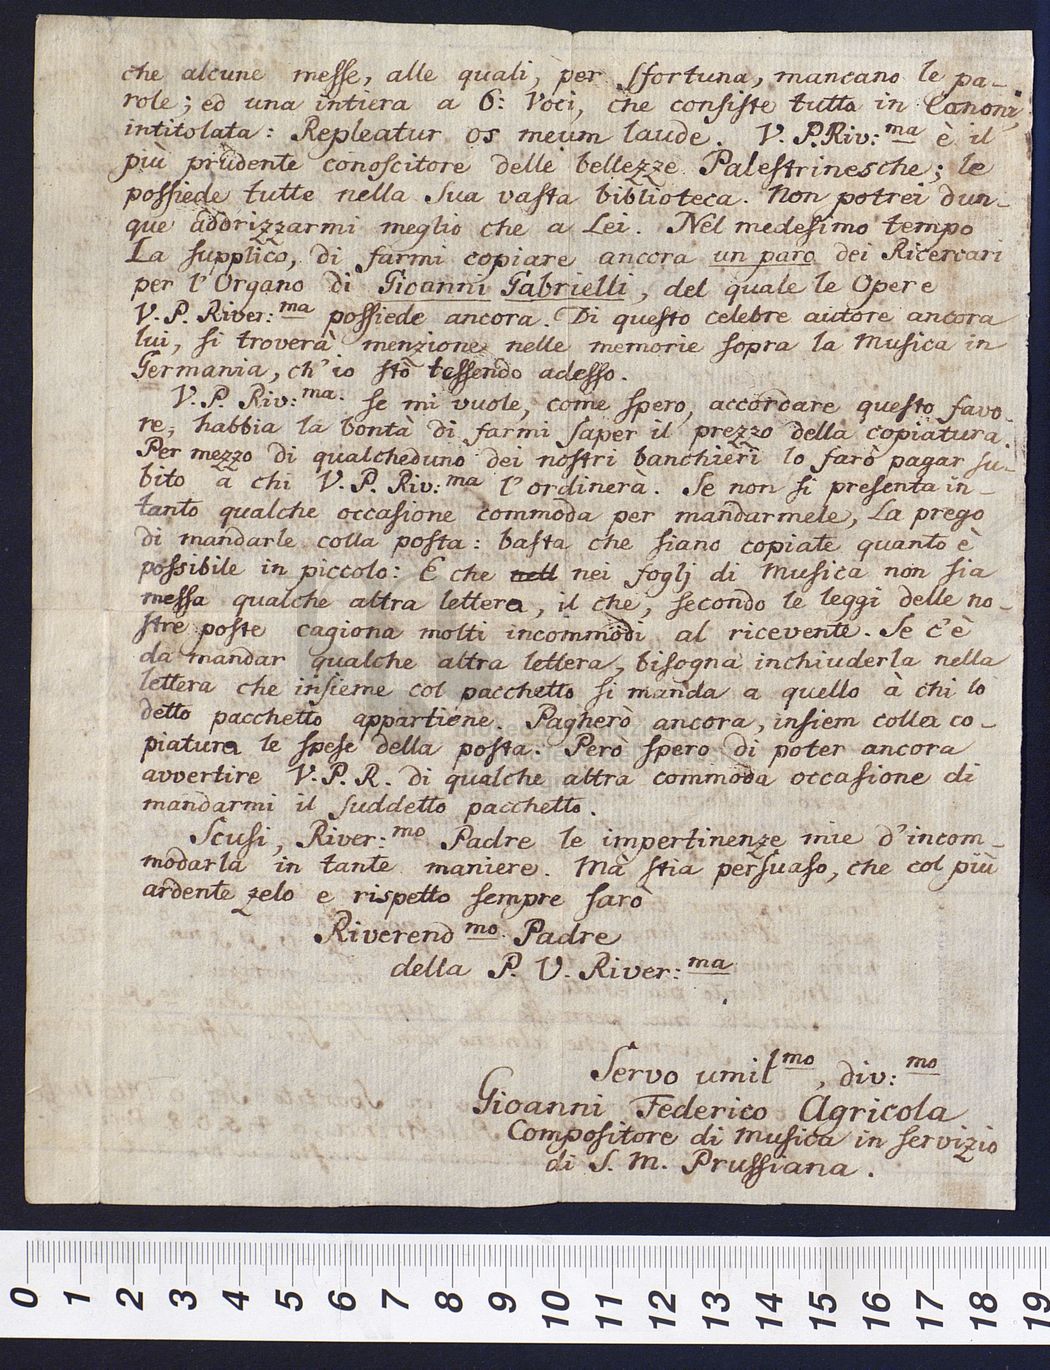 che alcune messe, alle quali, per sfortuna, mancano le pa-
role; ed una intiera a 6: Voci, che consiste tutta in Canoni,
intitolata: Repleatur os meum laude. V. P. Riv:ma è il
più prudente conoscitore delle bellezze Palestrinesche; le
possiede tutte nella Sua vasta biblioteca. Non potrei dun-
que addrizzarmi meglio che a Lei. Nel medesimo tempo
La supplico, di farmi copiare ancora un paro dei Ricercari
per l'Organo di Gioanni Gabrielli, del quale le Opere
V. P. River:ma possiede ancora. Di questo celebre autore ancora
lui, si troverà menzione nelle memorie sopra la Musica in
Germania, ch'io stò tessendo adesso.
V. P. Riv:ma. se mi vuole, come spero, accordare questo favo-
re, habbia la bontà di farmi saper il prezzo della copiatura.
Per mezzo di qualcheduno dei nostri banchieri lo farò pagar su-
bito à chi V. P. Riv:ma l'ordinerà. Se non si presenta in-
tanto qualche occasione commoda per mandarmele, La prego
di mandarle colla posta: basta che siano copiate quanto è
possibile in piccolo: E che nell nei foglj di Musica non sia
messa qualche altra lettera, il che, secondo le leggi delle no-
stre poste cagiona molti incommodi al ricevente. Se c'è
da mandar qualche altra lettera, bisogna inchiuderla nella
lettera che insieme col pacchetto si manda a quello à chi lo
detto pacchetto appartiene. Pagherò ancora, insiem colla co-
piatura le spese della posta. Però spero di poter ancora
avvertire V. P. R. di qualche altra commoda occasione di
mandarmi il suddetto pacchetto.
Scusi, River:mo Padre le impertinenze mie d'incom-
modarla in tante maniere. Mà stia persuaso, che col più
ardente zelo e rispetto sempre sarò
Riverendmo Padre
della P. V. River:ma
Servo umilmo, div:mo
Gioanni Federico Agricola
Compositore di Musica in servizio
di S. M. Prussiana.
0 1 2 3 4 5 6 7 8 9 10 11 12 13 14 15 16 17 18 19